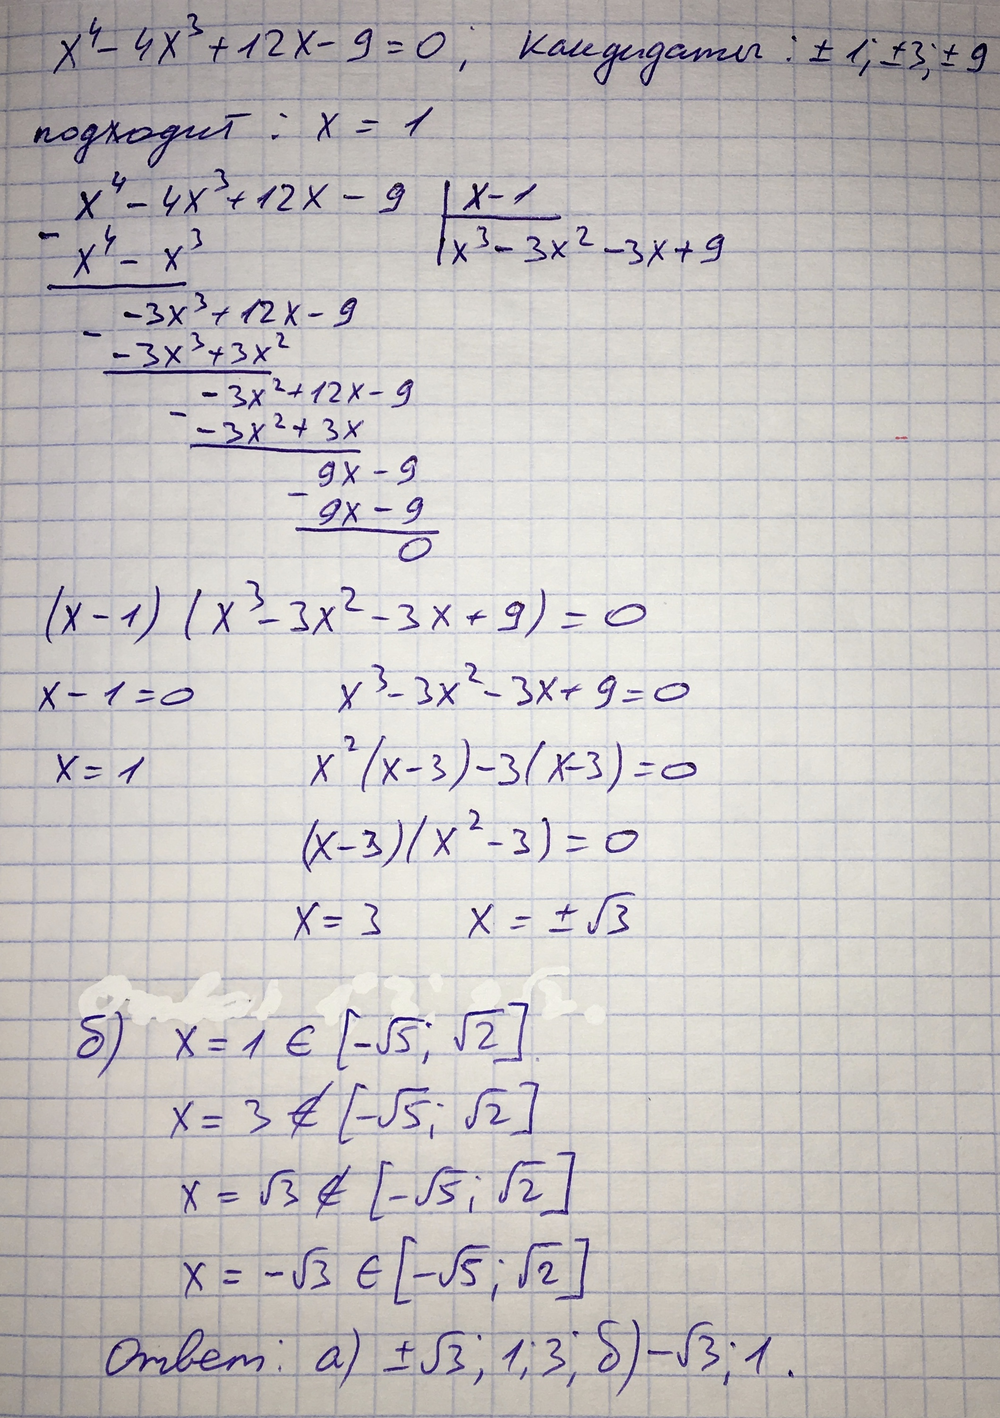 x⁴ - 4x³ + 12x - 9 = 0; Кандидаты: ± 1; ±3; ± 9
подходит: x = 1
x⁴ - 4x³ + 12x - 9 | x - 1
- x⁴ - x³ | x³ - 3x² - 3x + 9
-3x³ + 12x - 9
- -3x³ + 3x²
-3x² + 12x - 9
- -3x² + 3x
9x - 9
- 9x - 9
0
(x - 1) (x³ - 3x² - 3x + 9) = 0
x - 1 = 0 x³ - 3x² - 3x + 9 = 0
x = 1 x²(x - 3) - 3(x - 3) = 0
(x - 3)(x² - 3) = 0
x = 3 x = ±√3
б) x = 1 ∈ [-√5; √2]
x = 3 ∉ [-√5; √2]
x = √3 ∉ [-√5; √2]
x = -√3 ∈ [-√5; √2]
Ответ: а) ±√3; 1; 3; б) -√3; 1.